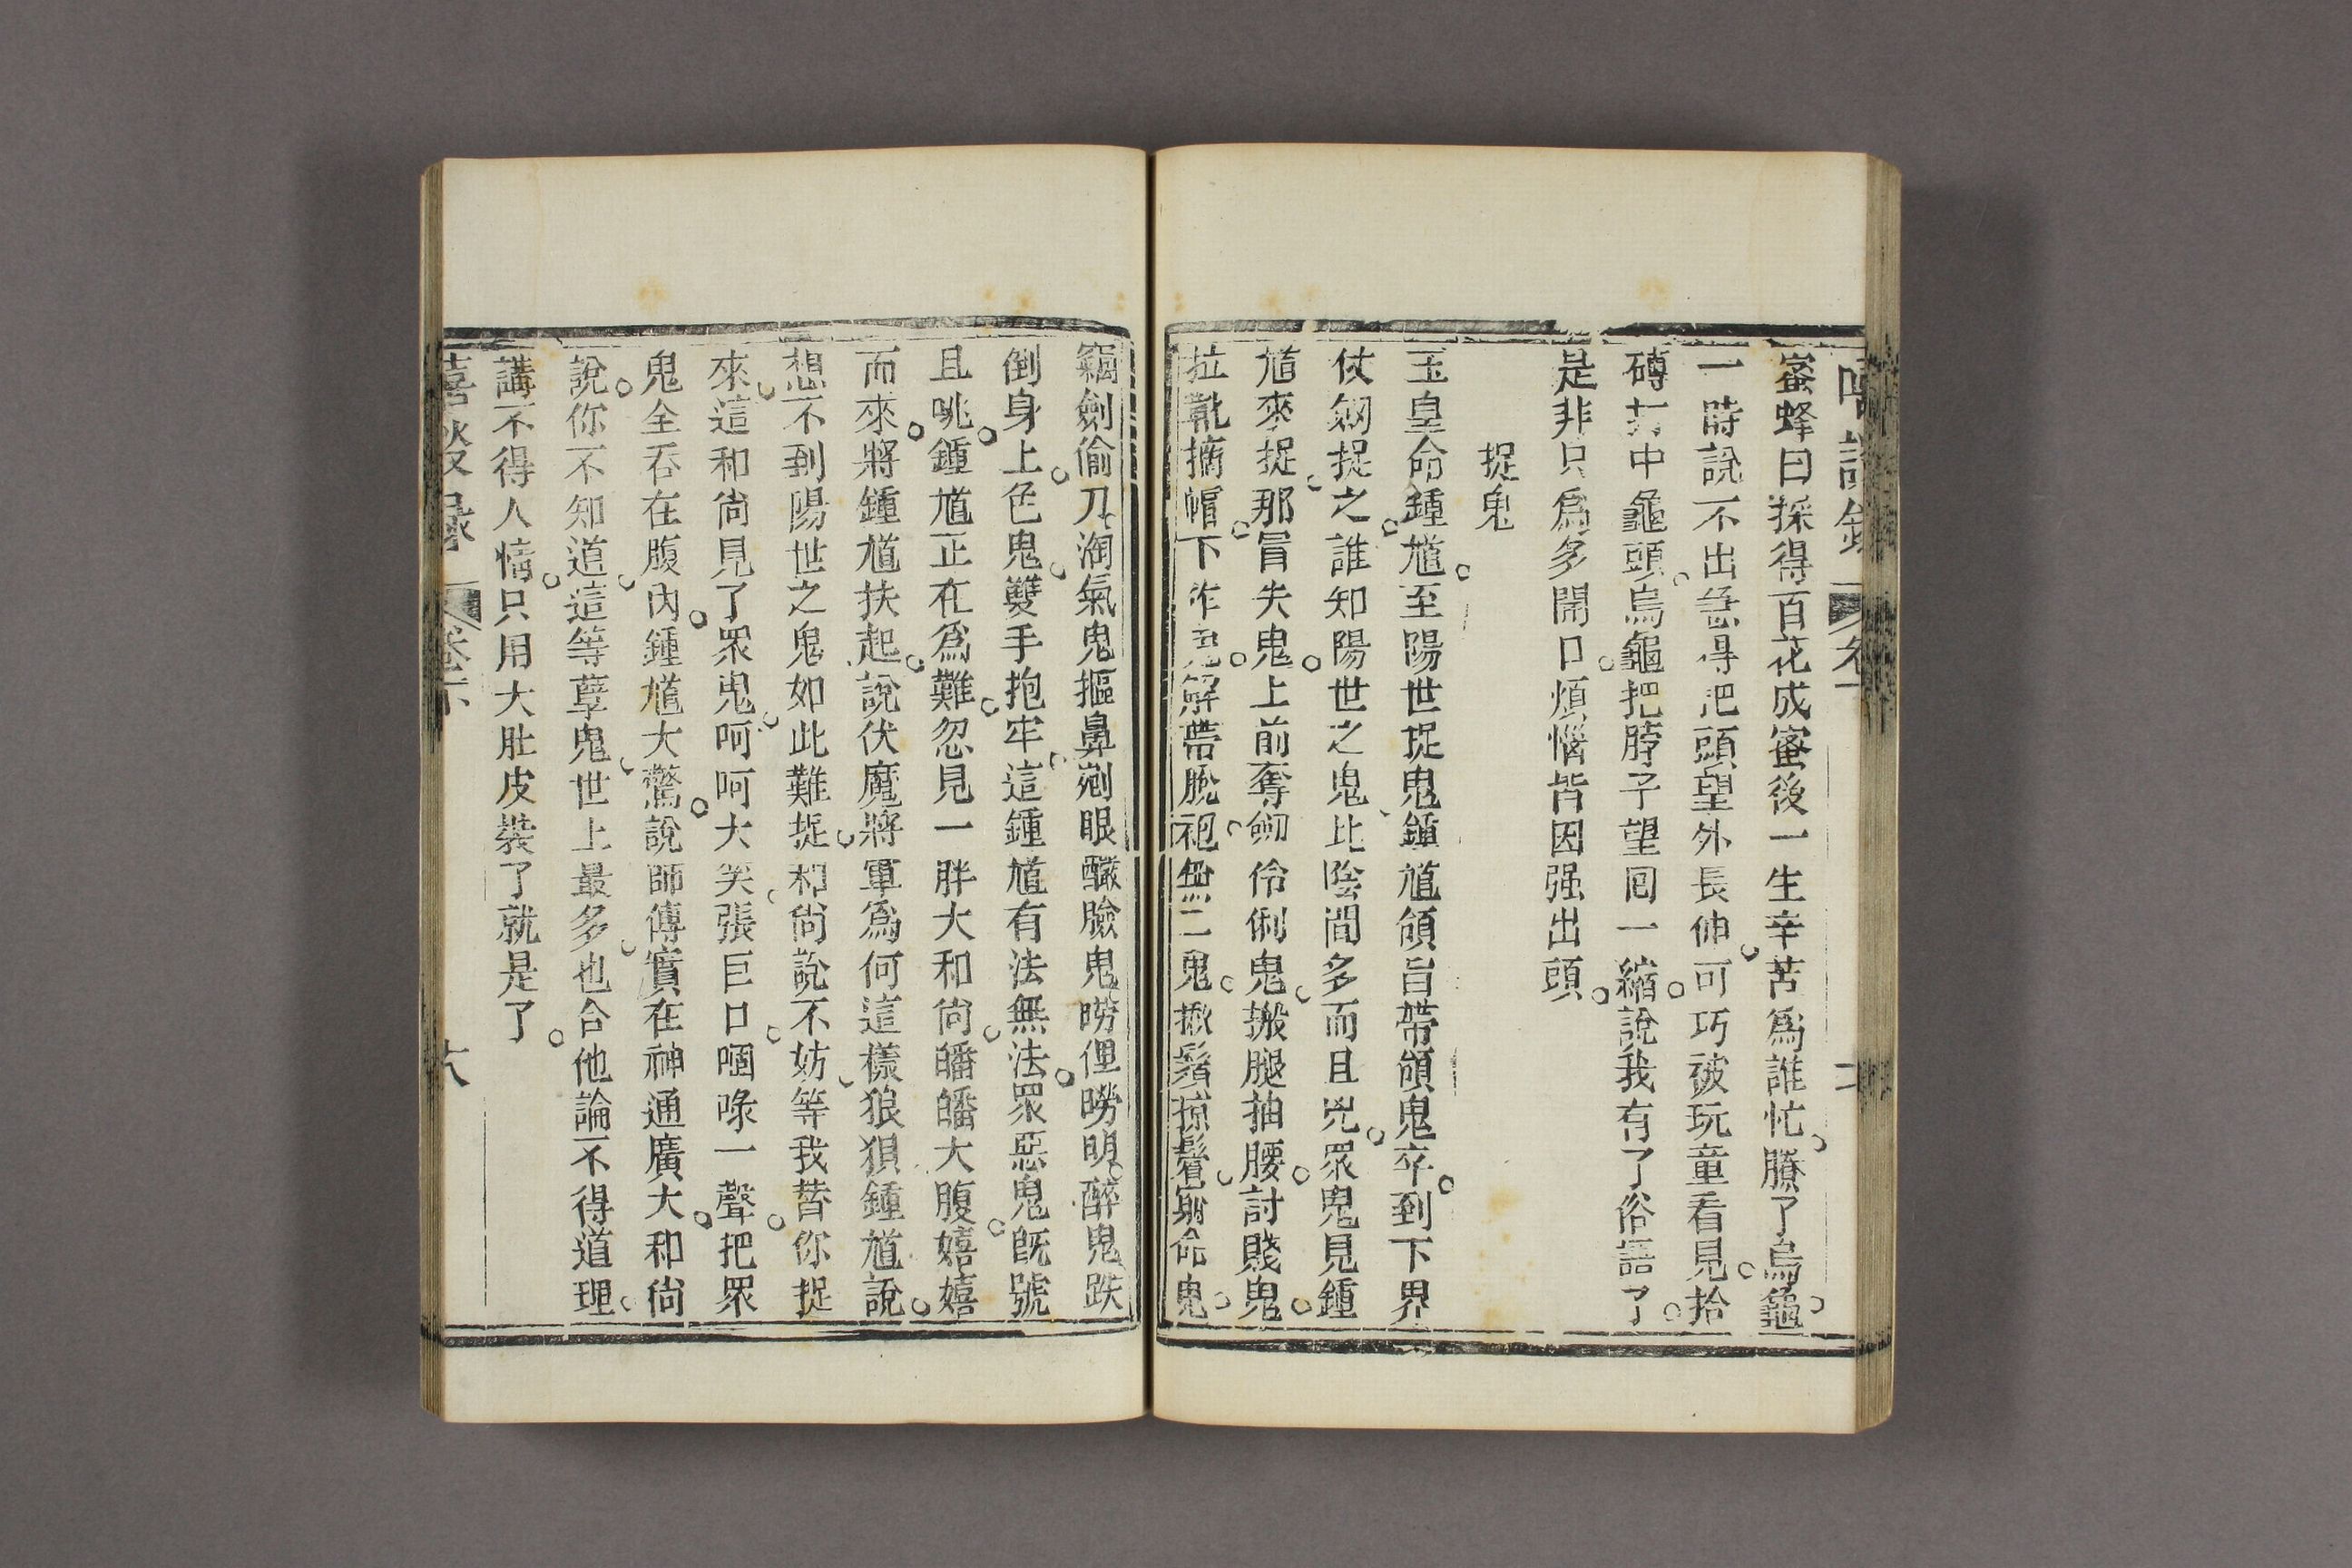 蜜蜂曰採得百花成蜜後一生辛苦爲誰忙臊了烏龜
一時說不出急得把頭望外長伸可巧被玩童看見拾
磚打中龜頭烏龜把脖子望囘一縮說我有了俗語了
是非只爲多開口煩惱皆因强出頭
捉鬼
玉皇命鍾馗至陽世捉鬼鍾馗領旨帶領鬼卒到下界
仗劒捉之誰知陽世之鬼比陰間多而且兇眾鬼見鍾
馗來捉那冒失鬼上前奪劒伶俐鬼搬腿抽腰討賤鬼
拉靴摘帽下作鬼解帶脫袍無二鬼揪鬚掠鬢窮命鬼
竊劍偷刀淘氣鬼摳鼻剜眼醶臉鬼嘮俚嘮叨醉鬼跌
倒身上色鬼雙手抱牢這鍾馗有法無法眾惡鬼旣號
且咷鍾馗正在爲難忽見一胖大和尙皤皤大腹嬉嬉
而來將鍾馗扶起說伏魔將軍爲何這樣狼狽鍾馗說
想不到陽世之鬼如此難捉和尙說不妨等我替你捉
來這和尙見了眾鬼呵呵大笑張巨口嘓㖨一聲把眾
鬼全吞在腹內鍾馗大驚說師傅實在神通廣大和尙
說你不知道這等孽鬼世上最多也合他論不得道理
講不得人情只用大肚皮裝了就是了
嘻談录 卷下
六